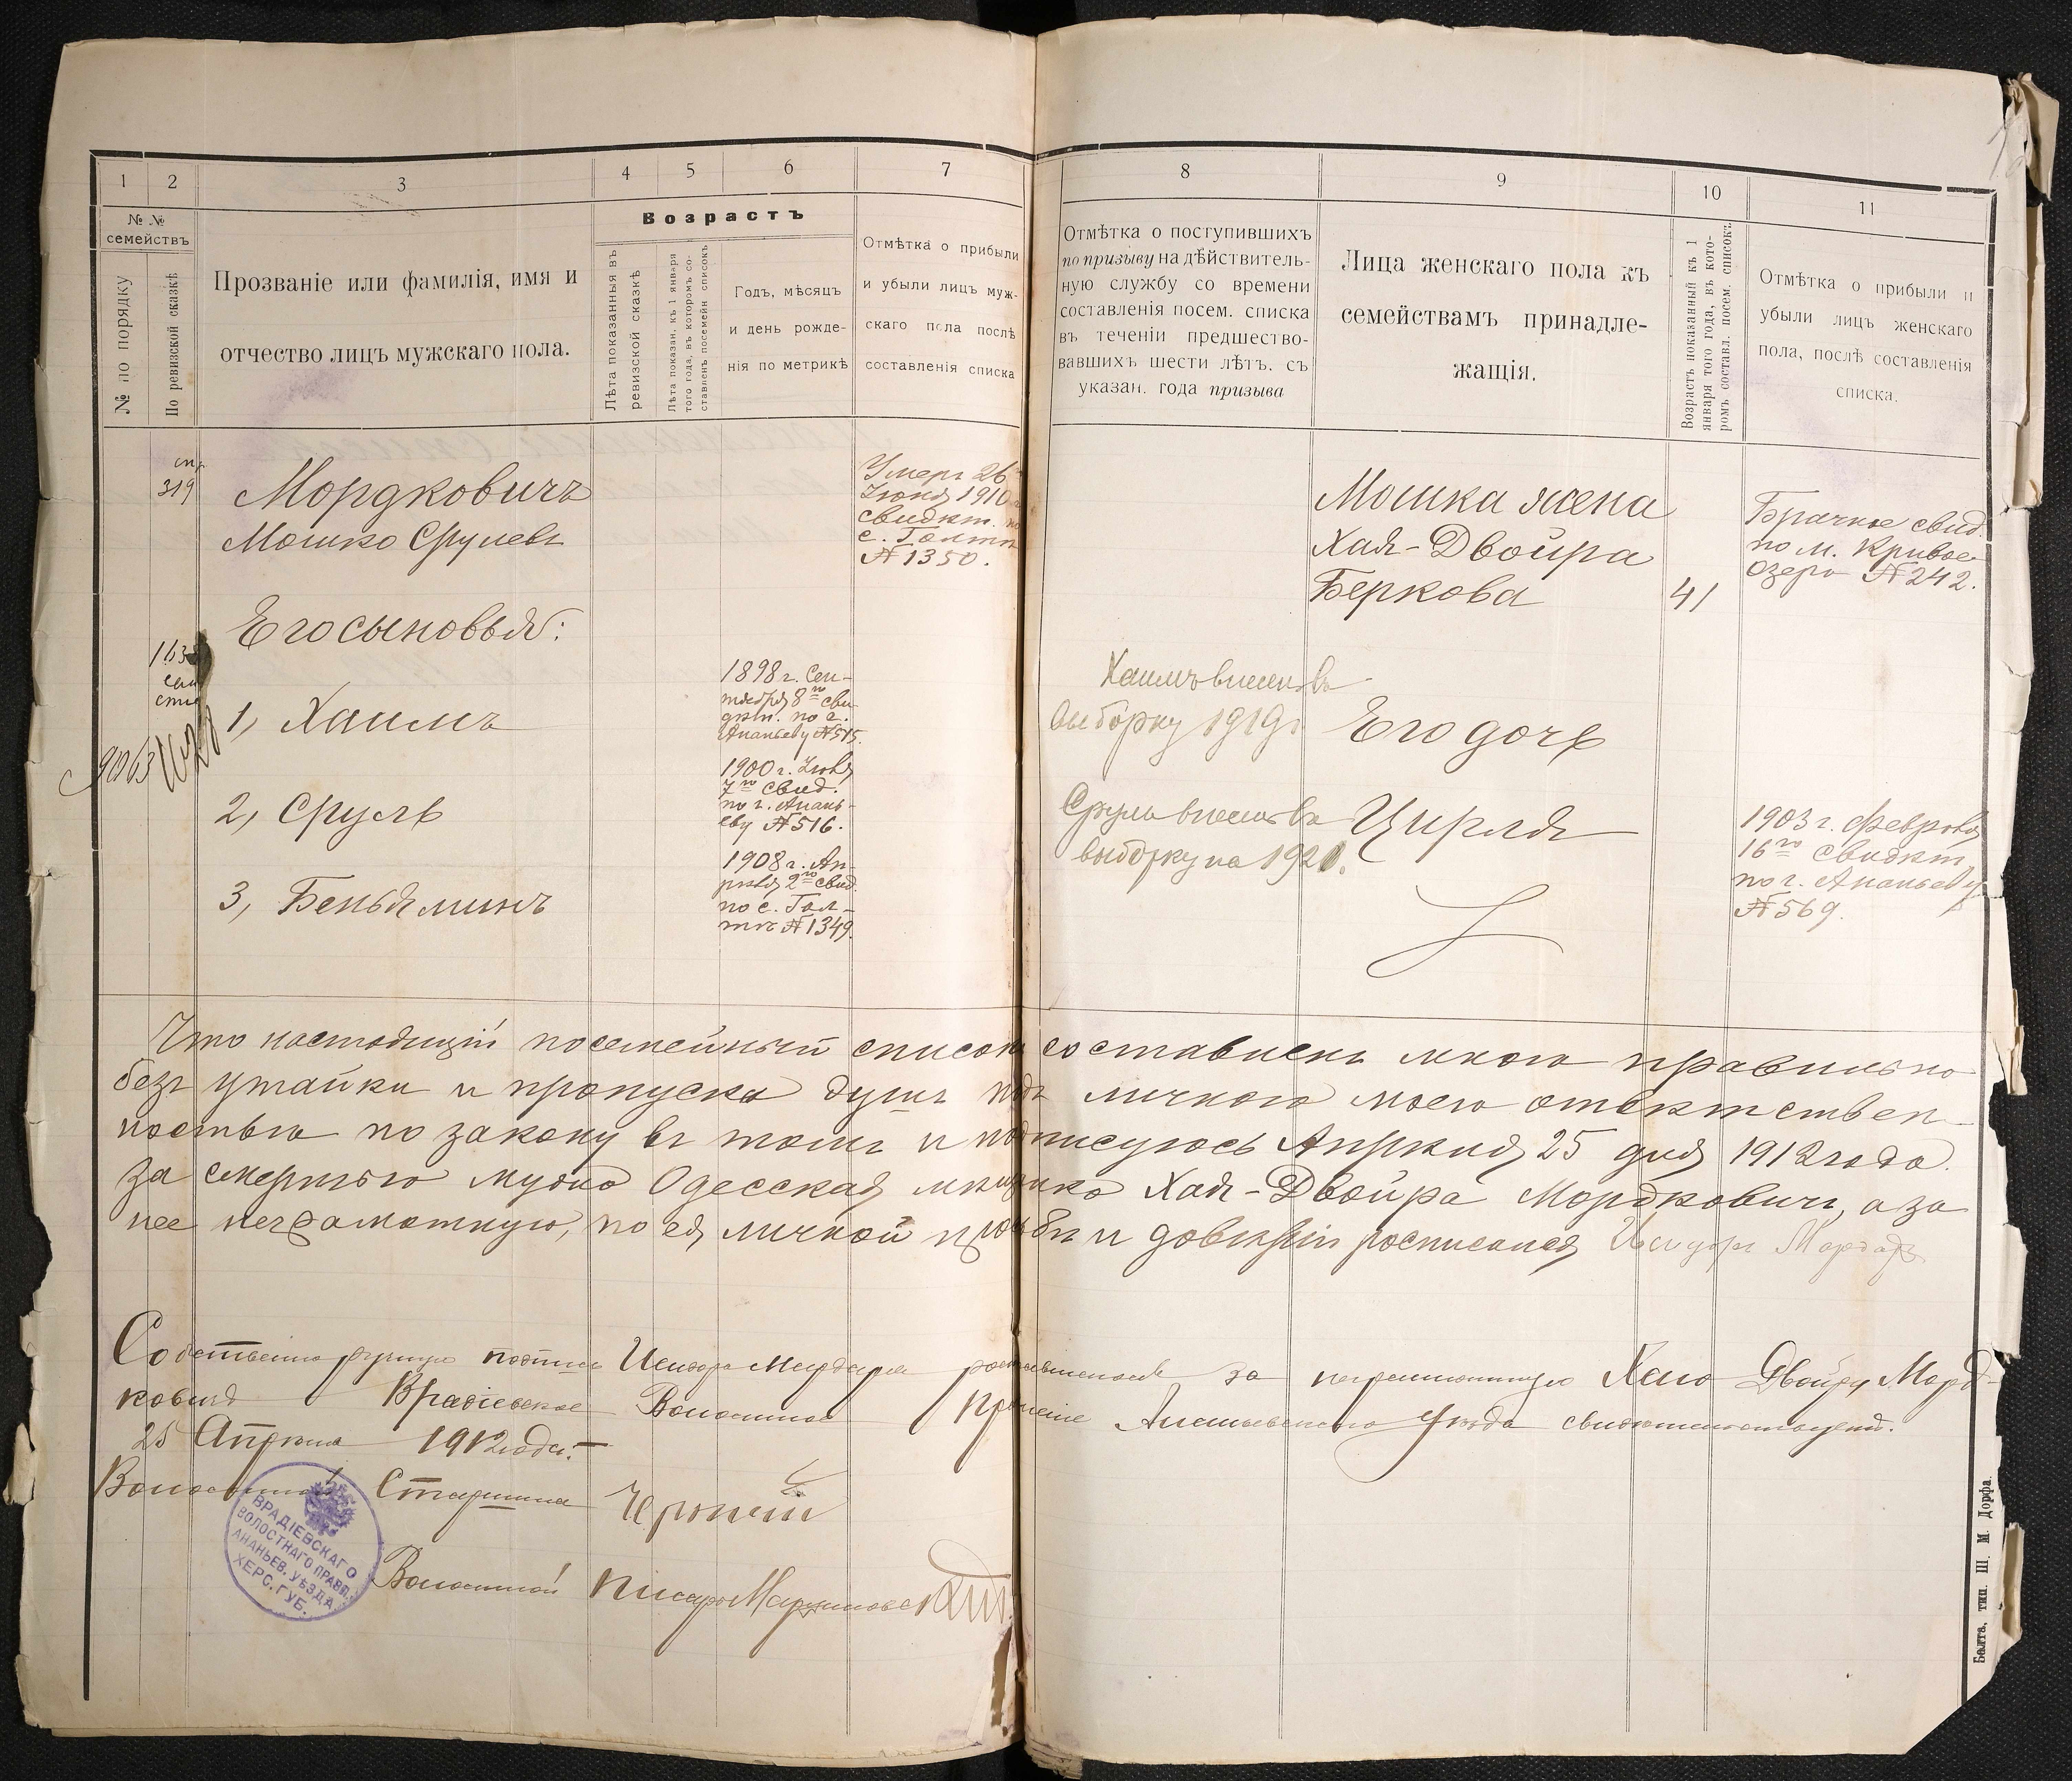 1
2
3
4
5
6
7
8
9
10
11
№ №
семействъ
№ по порядку
По ревизской сказкѣ
Прозваніе или фамилія, имя и
отчество лицъ мужскаго пола.
Возрастъ
Лѣта показанныя въ
ревизской сказкѣ
Лѣта показан. къ 1 января
того года, въ которомъ со-
ставленъ посемейн списокъ
Годъ, мѣсяцъ
и день рожде-
нія по метрикѣ
Отмѣтка о прибыли
и убыли лицъ муж-
скаго пола послѣ
составленія списка
Отмѣтка о поступившихъ
по призыву на дѣйствитель-
ную службу со времени
составленія посем. списка
въ теченіи предшество-
вавшихъ шести лѣтъ, съ
указан. года призыва
Лица женскаго пола къ
семействамъ принадле-
жащія.
Возрастъ показанный къ 1
января того года, въ кото-
ромъ составл. посем. списокъ
Отмѣтка о прибыли и
убыли лицъ женскаго
пола, послѣ составленія
списка.
319
Мордковичъ
Мошко Срулевъ
Умеръ 26
Іюня 1910
свидѣт. по
с. Голтѣ
№ 1350.
Мошка жена
Хая-Двойра
Беркова
41
Брачное свид.
по м. Кривое-
Озеро № 242.
Его сыновья:
1, Хаимъ
1898 г. Сен-
тября 8го сви-
дѣт. по г.
Ананьеву № 515.
Хаимъ внесенъ въ
выборку 1919 г.
Его дочь
2, Сруль
1900 г. Іюля
7го свид.
по г. Анань-
еву № 516.
Сруль внесенъ въ
выборку на 1921.
Цирля
1903 г. Февраля
16го свидѣт.
по г. Ананьеву
№ 569.
3, Беньяминъ
1908 г. Ап-
рѣля 2го свид.
по с. Гол-
тѣ № 1349.
Что настоящій посемейный списокъ составленъ мною правильно
безъ утайки и пропуска душъ подъ личною моею отвѣтствен-
ностью по закону въ томъ и подписуюсь Апрѣля 25 дня 1912 года.
За смертью мужа Одесская мѣщанка Хая-Двойра Мордковичъ, а за
нее неграмотную, по ея личной просьбѣ и довѣрію росписался Исидоръ Мардарь
Собственноручную подпись Исидора Мардаря росписавшагося за неграмотную Хаю Двойру Морд-
ковичъ Врадіевское Волостное Правленіе Ананьевскаго Уѣзда свидѣтельствуетъ.
25 Апрѣля 1912 года.
Волостной Старшина
Волостной Писарь
ВРАДІЕВСКАГО
ВОЛОСТНАГО ПРАВЛ.
АНАНЬЕВ. УѢЗДА
ХЕРС. ГУБ.
Балта, тип. Ш. М. Дорфа.